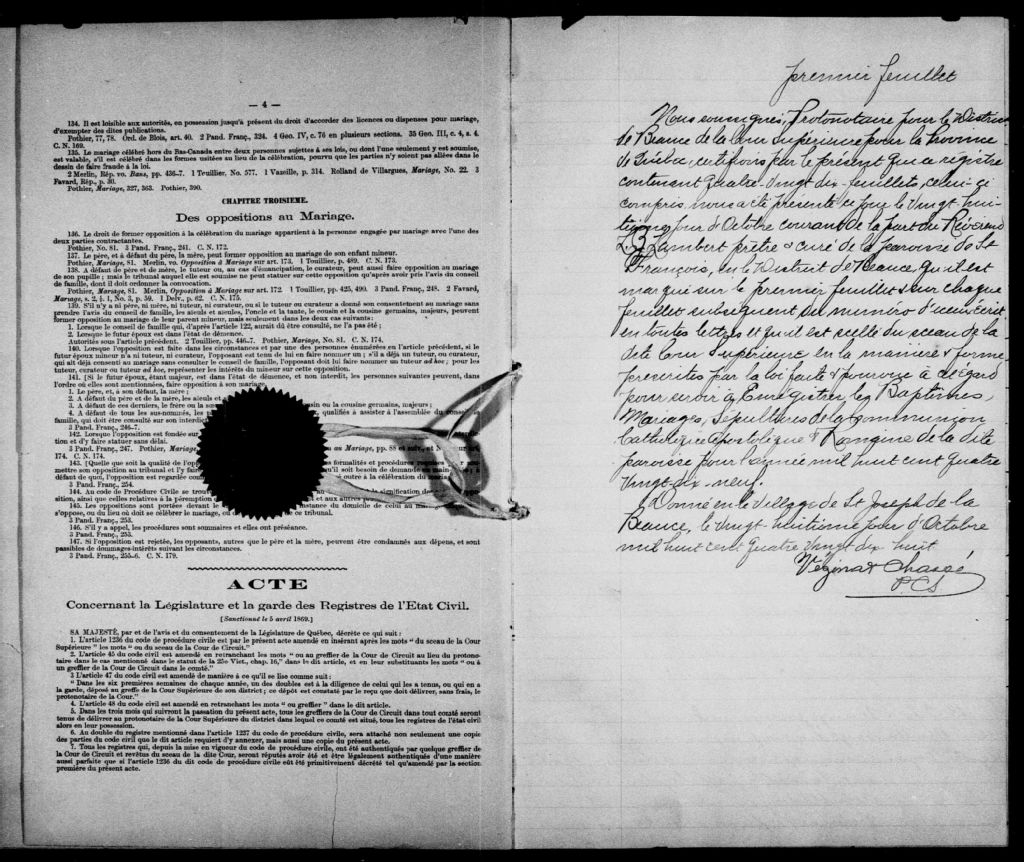 — 4 —
134. Il est loisible aux autorités, en possession jusqu'à présent du droit d'accorder des licences ou dispenses pour mariage,
d'exempter des dites publications.
Pothier, 77, 78. Ord. de Blois, art. 40. 2 Pand. Franç., 324. 4 Geo. IV, c. 76 en plusieurs sections. 35 Geo. III, c. 4, s. 4.
C. N. 169.
135. Le mariage célébré hors du Bas-Canada entre deux personnes sujettes à ses lois, ou dont l'une seulement y est soumise,
est valable, s'il est célébré dans les formes usitées au lieu de la célébration, pourvu que les parties n'y soient pas allées dans le
dessein de faire fraude à la loi.
2 Merlin, Rép. vo. Bans, pp. 436-7. 1 Touillier, No. 577. 1 Vazeille, p. 314. Rolland de Villargues, Mariage, No. 22. 3
Favard, Rép., p. 30.
Pothier, Mariage, 327, 363. Pothier, 390.
CHAPITRE TROISIEME.
Des oppositions au Mariage.
136. Le droit de former opposition à la célébration du mariage appartient à la personne engagée par mariage avec l'une des
deux parties contractantes.
Pothier, No. 81. 3 Pand. Franç., 241. C. N. 172.
137. Le père, et à défaut du père, la mère, peut former opposition au mariage de son enfant mineur.
Pothier, Mariage, 81. Merlin, vo. Opposition à Mariage sur art. 173. 1 Touillier, p. 489. C. N. 173.
138. A défaut de père et de mère, le tuteur ou, au cas d'émancipation, le curateur, peut aussi faire opposition au mariage
de son pupille ; mais le tribunal auquel elle est soumise ne peut statuer sur cette opposition qu'après avoir pris l'avis du conseil
de famille, dont il doit ordonner la convocation.
Pothier, Mariage, 81. Merlin, Opposition à Mariage sur art. 172. 1 Touillier, pp. 425, 490. 3 Pand. Franç., 248. 2 Favard,
Mariage, s. 2, § 1, No. 3, p. 59. 1 Delv., p. 62. C. N. 175.
139. S'il n'y a ni père, ni mère, ni tuteur, ni curateur, ou si le tuteur ou curateur a donné son consentement au mariage sans
prendre l'avis du conseil de famille, les aïeuls et aïeules, l'oncle et la tante, le cousin et la cousine germains, majeurs, peuvent
former opposition au mariage de leur parent mineur, mais seulement dans les deux cas suivants :
1. Lorsque le conseil de famille qui, d'après l'article 122, aurait dû être consulté, ne l'a pas été ;
2. Lorsque le futur époux est dans l'état de démence.
Autorités sous l'article précédent. 2 Touillier, pp. 446-7. Pothier, Mariage, No. 81. C. N. 174.
140. Lorsque l'opposition est faite dans les circonstances et par une des personnes énumérées en l'article précédent, si le
futur époux mineur n'a ni tuteur, ni curateur, l'opposant est tenu de lui en faire nommer un ; s'il a déjà un tuteur, ou curateur,
qui ait déjà consenti au mariage sans consulter le conseil de famille, l'opposant doit lui faire nommer un tuteur ad hoc ; pour les
tuteur, curateur ou tuteur ad hoc, représenter les intérêts du mineur sur cette opposition.
141. [Si le futur époux, étant majeur, est dans l'état de démence, et non interdit, les personnes suivantes peuvent, dans
l'ordre où elles sont mentionnées, faire opposition à son mariage
1. Le père, et, à son défaut, la mère ;
2. A défaut du père et de la mère, les aïeuls et
3. A défaut de ces derniers, le frère ou la sœ sin ou la cousine germains, majeurs ;
4. A défaut de tous les sus-nommés, les qualifiés à assister à l'assemblée du conseil
famille, qui doit être consulté sur son interdict
3 Pand. Franç., 246-7.
142. Lorsque l'opposition est fondée sur
tion et d'y faire statuer sans délai.
3 Pand. Franç., 247. Pothier, Mariage au Mariage, pp. 88 et suiv.
174. C. N. 174.
143. [Quelle que soit la qualité de l'op s formalités et procédures
mettre son opposition au tribunal et l'y fai 'il soit besoin de demande
défaut de quoi, l'opposition est regardée com outre
3 Pand. Franç., 254.
144. Au Code de Procédure Civile se trou la signification des
sition, ainsi que celles relatives à la péremption et aux autres
145. Les oppositions sont portées devant le nstance du domicile de celui au
s'oppose, ou du lieu où doit se célébrer le mariage, ou ce tribunal.
3 Pand. Franç., 253.
146. S'il y a appel, les procédures sont sommaires et elles ont préséance.
3 Pand. Franç., 253.
147. Si l'opposition est rejetée, les opposants, autres que le père et la mère, peuvent être condamnés aux dépens, et sont
passibles de dommages-intérêts suivant les circonstances.
3 Pand. Franç., 255-6. C. N. 179.
ACTE
Concernant la Législature et la garde des Registres de l'Etat Civil.
[Sanctionné le 5 avril 1869.]
SA MAJESTÉ, par et de l'avis et du consentement de la Législature de Québec, décrète ce qui suit :
1. L'article 1236 du code de procédure civile est par le présent acte amendé en insérant après les mots " du sceau de la Cour
Supérieure " les mots " ou du sceau de la Cour de Circuit."
2. L'article 45 du code civil est amendé en retranchant les mots " ou au greffier de la Cour de Circuit au lieu du protono-
taire dans le cas mentionné dans le statut de la 25e Vict., chap. 16," dans le dit article, et en leur substituant les mots " ou à
un greffier de la Cour de Circuit dans le comté."
3 L'article 47 du code civil est amendé de manière à ce qu'il se lise comme suit :
" Dans les six premières semaines de chaque année, un des doubles est à la diligence de celui qui les a tenus, ou qui en a
la garde, déposé au greffe de la Cour Supérieure de son district ; ce dépôt est constaté par le reçu que doit délivrer, sans frais, le
protonotaire de la Cour."
4. L'article 48 du code civil est amendé en retranchant les mots " ou greffier " dans le dit article.
5. Dans les trois mois qui suivront la passation du présent acte, tous les greffiers de la Cour de Circuit dans tout comté seront
tenus de délivrer au protonotaire de la Cour Supérieure du district dans lequel ce comté est situé, tous les registres de l'état civil
alors en leur possession.
6. Au double du registre mentionné dans l'article 1237 du code de procédure civile, sera attaché non seulement une copie
des parties du code civil que le dit article requiert d'y annexer, mais aussi une copie du présent acte.
7. Tous les registres qui, depuis la mise en vigueur du code de procédure civile, ont été authentiqués par quelque greffier de
la Cour de Circuit et revêtus du sceau de la dite Cour, seront réputés avoir été et être légalement authentiqués d'une manière
aussi parfaite que si l'article 1236 du dit code de procédure civile eût été primitivement décrété tel qu'amendé par la section
première du présent acte.
premier feuillet
Nous soussignés, Protonotaire pour le District
de Beauce de la Cour Supérieure pour la Province
de Québec, certifions par le présent que ce registre
contenant quatre-vingt dix-feuillets, celui-ci
compris nous a été présenté ce jour le vingt-hui-
tième jour d'Octobre courant de la part du Révérend
Lambert prêtre & curé de la paroisse de St
François, en le District de Beauce, qu'il est
marqué sur le premier feuillet & sur chaque
feuillet subséquent du numéro d'icelui écrit
en toutes lettres et qu'il est scellé du sceau de la
dite Cour Supérieure en la manière & forme
prescrites par la loi faite & pourvue à cet égard
pour servir à Enregistrer les Baptêmes,
Mariages, Sépultures de la Communion
Catholique Apostolique & Romaine de la dite
paroisse pour l'année mil huit cent quatre
vingt-dix-neuf.
Donné en le village de St Joseph de la
Beauce, le vingt-huitième jour d'Octobre
mil huit cent quatre vingt dix huit
Vézina & Chassé
P.C.S